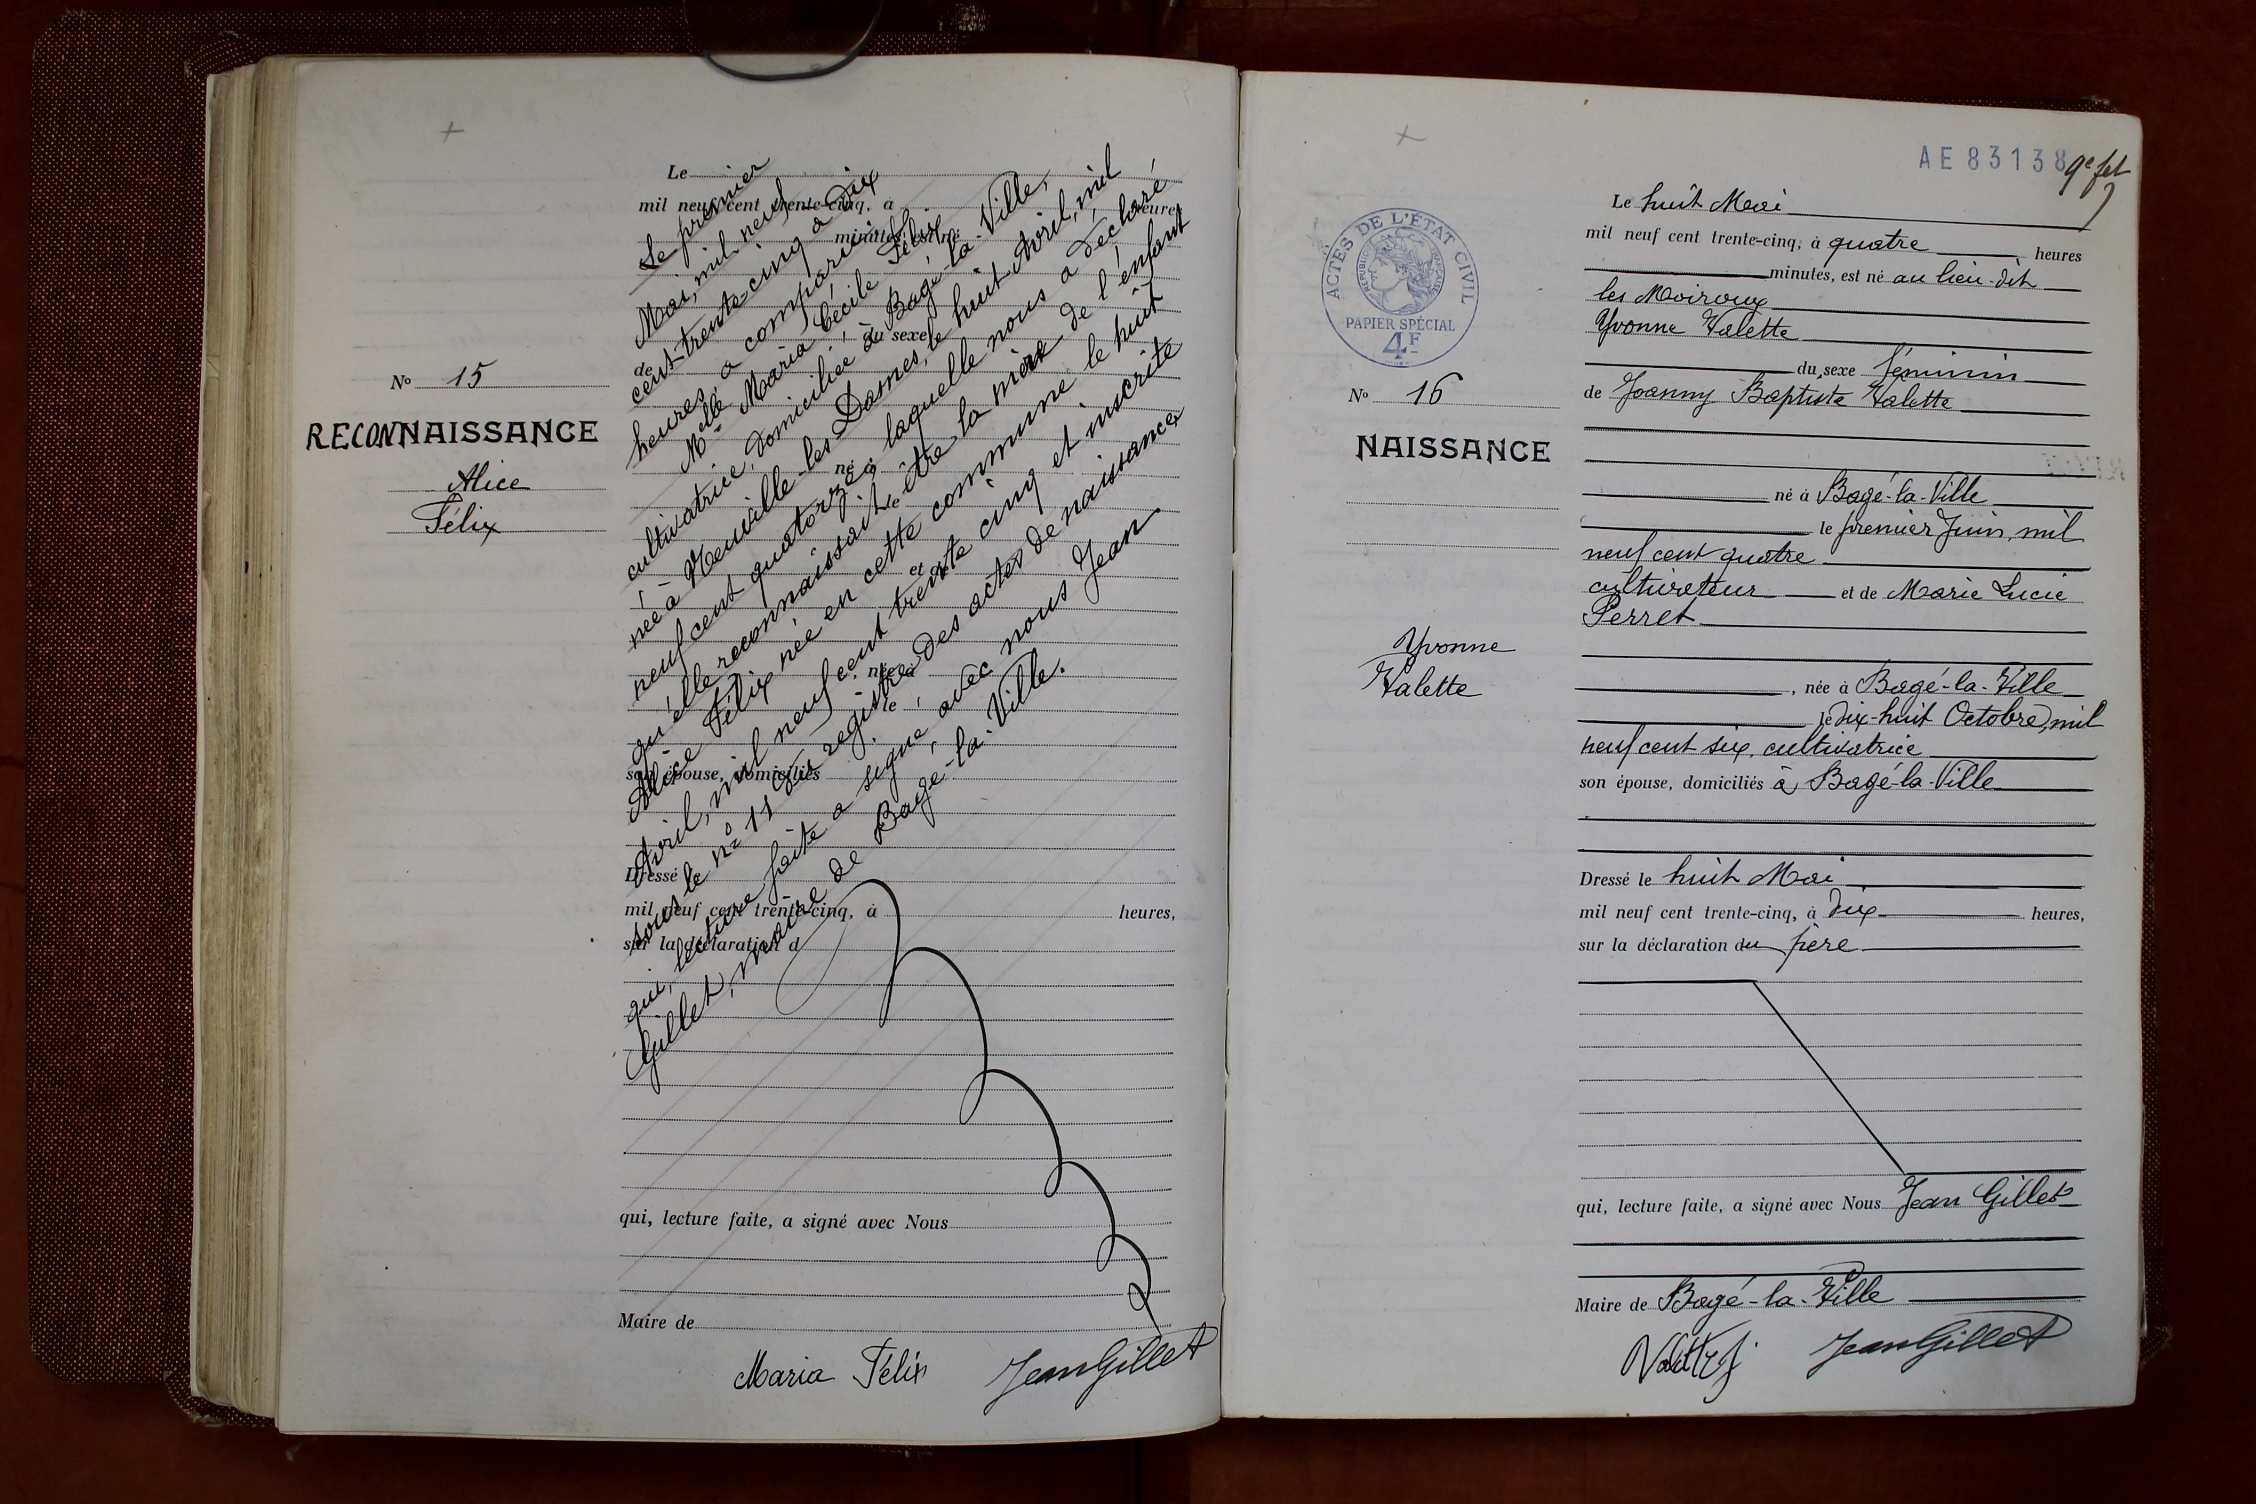 N° 15
RECONNAISSANCE
Alice
Félix
Le
mil neuf cent trente-cinq, à heures
minutes, est né
du sexe
de
né à
le
et de
née à
le
son épouse, domiciliés
Dressé le
mil neuf cent trente-cinq, à heures,
sur la déclaration d
qui, lecture faite, a signé avec Nous
Maire de
Le premier
Mai, mil neuf
cent trente-cinq à dix
heures, a comparu
Melle Maria Cécile Félix
cultivatrice, domiciliée à Bagé-la-Ville,
née à Neuville-les-Dames, le huit Avril, mil
neuf cent quatorze, laquelle nous a déclaré
qu'elle reconnaissait être la mère de l'enfant
Alice Félix née en cette commune le huit
Avril, mil neuf cent trente cinq et inscrite
sous le n° 11 du registre des actes de naissances
qui, lecture faite a signé, avec nous Jean
Gillet, maire de Bagé-la-Ville.
Maria Félix JeanGillet
AE 83138
9e fet
ACTES DE L'ÉTAT CIVIL
RÉPUBLIQUE FRANÇAISE
PAPIER SPÉCIAL
4F
N° 16
NAISSANCE
Yvonne
Valette
Le huit Mai
mil neuf cent trente-cinq, à quatre heures
minutes, est né au lieu-dit
les Moiroux
Yvonne Valette
du sexe féminin
de Joanny Baptiste Valette
né à Bagé-la-Ville
le premier Juin, mil
neuf cent quatre
cultivateur et de Marie Lucie
Perret
, née à Bagé-la-Ville
le dix-huit Octobre, mil
neuf cent six, cultivatrice
son épouse, domiciliés à Bagé-la-Ville
Dressé le huit Mai
mil neuf cent trente-cinq, à dix heures,
sur la déclaration du père
qui, lecture faite, a signé avec Nous Jean Gillet
Maire de Bagé-la-Ville
Valette J. JeanGillet